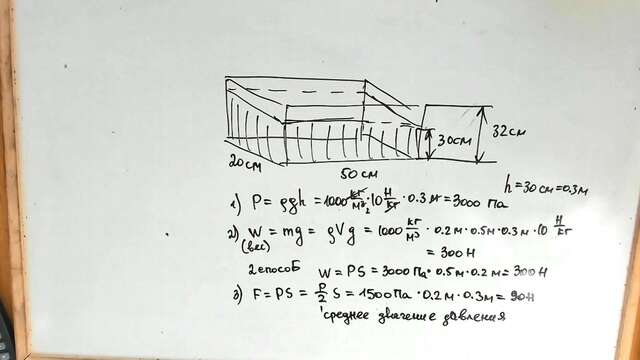 32см
30см
20см
50 см
h = 30см = 0.3м
1) P = ρgh = 1000 кг/м³ · 10 Н/кг · 0.3 м = 3000 Па
2) W = mg = ρVg = 1000 кг/м³ · 0.2м · 0.5м · 0.3м · 10 Н/кг
(вес)
= 300Н
2 способ W = PS = 3000Па · 0.5м · 0.2м = 300Н
3) F = PS = P/2 S = 1500Па · 0.2м · 0.3м = 90Н
среднее значение давления